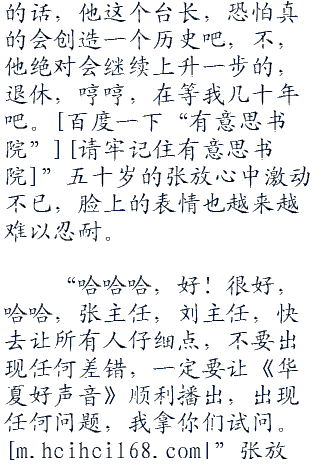 的话，他这个台长，恐怕真
的会创造一个历史吧，不，
他绝对会继续上升一步的，
退休，哼哼，在等我几十年
吧。[百度一下“有意思书
院”][请牢记住有意思书
院]”五十岁的张放心中激动
不已，脸上的表情也越来越
难以忍耐。
“哈哈哈，好！很好，
哈哈，张主任，刘主任，快
去让所有人仔细点，不要出
现任何差错，一定要让《华
夏好声音》顺利播出，出现
任何问题，我拿你们试问。
[m.hcihci168.com|”张放